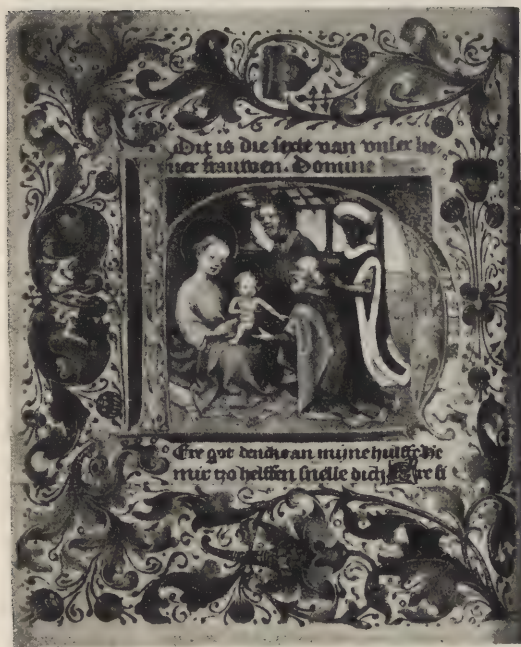 Dit is die sexte van vnser lie
uer frauwen. Domine
Ere got dencke an mijne hulffe De
mir tzo helffen snelle dich Ere si